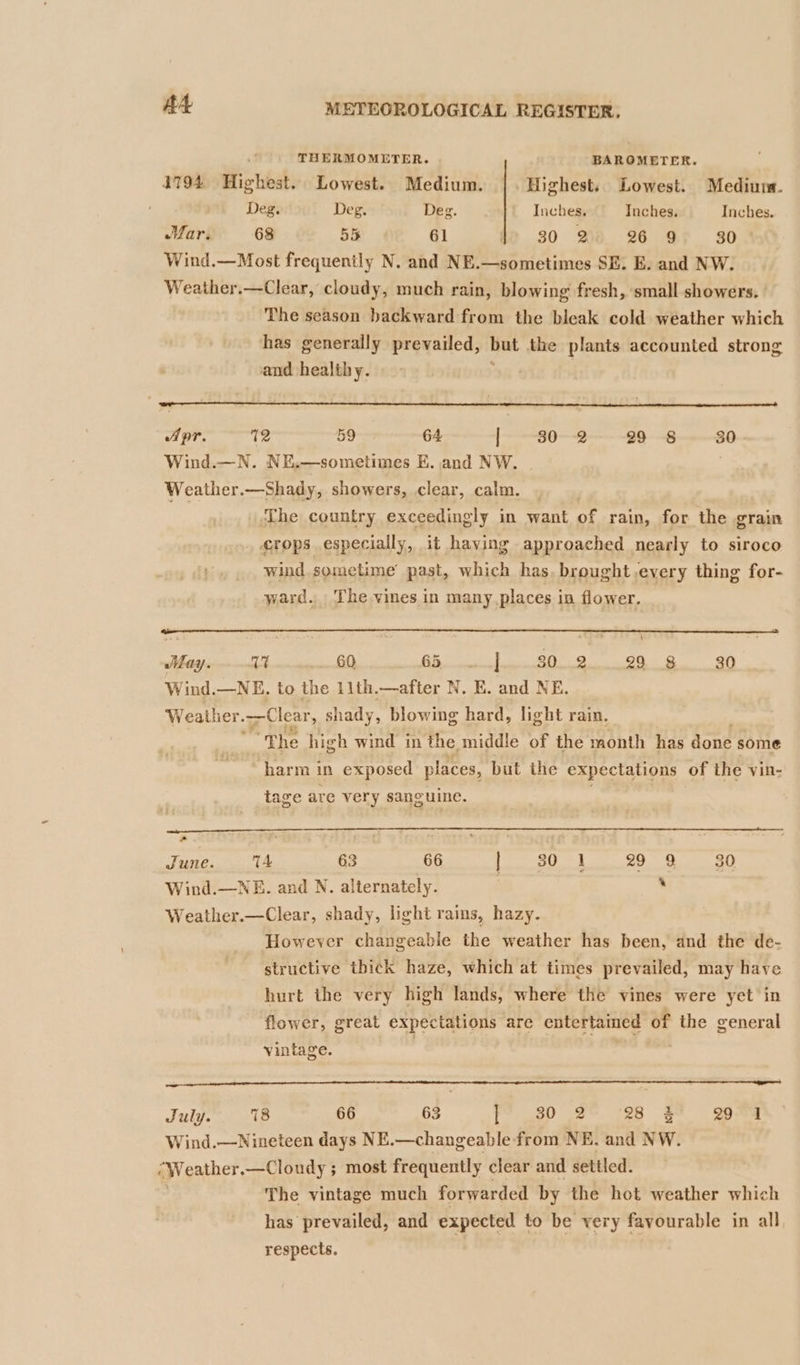 44 METEOROLOGICAL REGISTER.
THERMOMETER. BAROMETER.
1794 Highest. Lowest. Medium. Highest. Lowest. Medium.
Deg. Deg. Deg. Inches. Inches. Inches.
Mar. 68 55 61 30 2 26 9 30
Wind.—Most frequently N. and NE.—sometimes SE. E. and NW.
Weather.—Clear, cloudy, much rain, blowing fresh, small showers.
The season backward from the bleak cold weather which
has generally prevailed, but the plants accounted strong
and healthy.
Apr. 72 59 64 30 2 29 8 30
Wind.—N. NE.—sometimes E. and NW.
Weather.—Shady, showers, clear, calm.
The country exceedingly in want of rain, for the grain
crops especially, it having approached nearly to siroco
wind sometime past, which has brought every thing for-
ward. The vines in many places in flower.
May. 77 60 65 30 2 29 8 30
Wind.—NE. to the 11th.—after N. E. and NE.
Weather.—Clear, shady, blowing hard, light rain.
The high wind in the middle of the month has done some
harm in exposed places, but the expectations of the vin-
tage are very sanguine.
June. 74 63 66 30 1 29 9 30
Wind.—NE. and N. alternately.
Weather.—Clear, shady, light rains, hazy.
However changeable the weather has been, and the de-
structive thick haze, which at times prevailed, may have
hurt the very high lands, where the vines were yet in
flower, great expectations are entertained of the general
vintage.
July. 78 66 63 30 2 28 ¾ 29 1
Wind.—Nineteen days NE.—changeable from NE. and NW.
Weather.—Cloudy; most frequently clear and settled.
The vintage much forwarded by the hot weather which
has prevailed, and expected to be very favourable in all
respects.